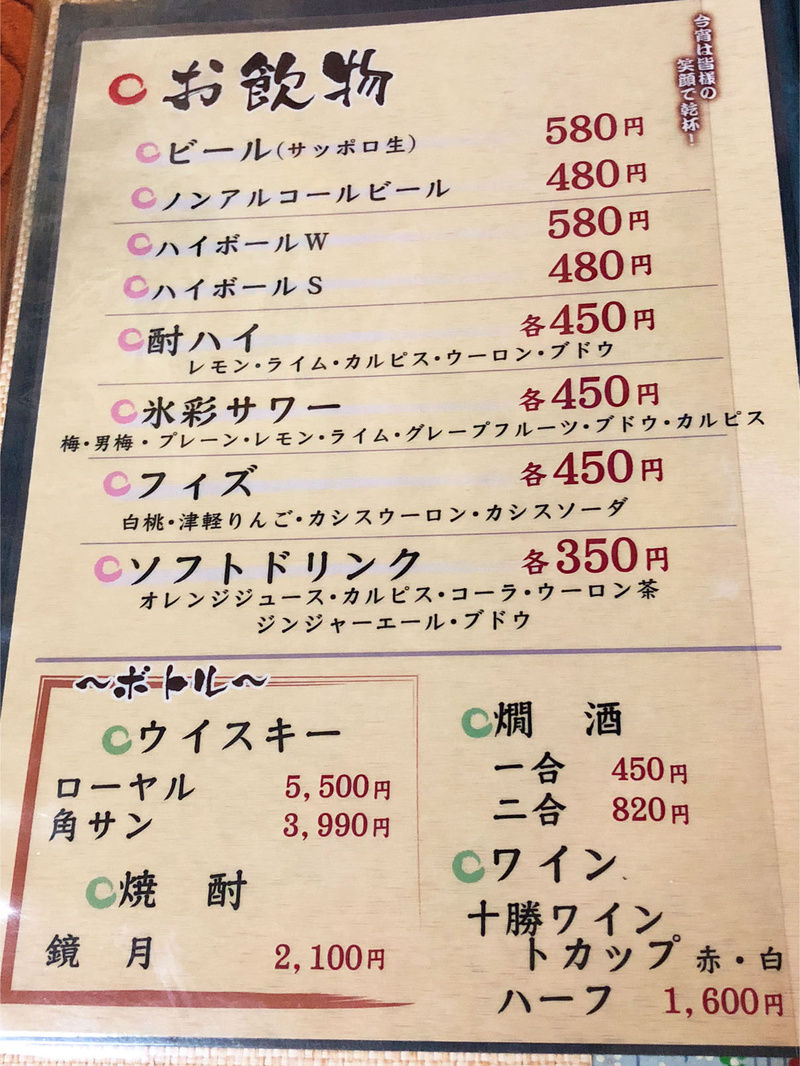 お飲物
今宵は皆様の
笑顔で乾杯!
ビール(サッポロ生) 580円
ノンアルコールビール 480円
ハイボールW 580円
ハイボールS 480円
酎ハイ 各450円
レモン・ライム・カルピス・ウーロン・ブドウ
氷彩サワー 各450円
梅・男梅・プレーン・レモン・ライム・グレープフルーツ・ブドウ・カルピス
フィズ 各450円
白桃・津軽りんご・カシスウーロン・カシスソーダ
ソフトドリンク 各350円
オレンジジュース・カルピス・コーラ・ウーロン茶
ジンジャーエール・ブドウ
〜ボトル〜
ウイスキー
ローヤル 5,500円
角サン 3,990円
焼酎
鏡月 2,100円
燗酒
一合 450円
二合 820円
ワイン
十勝ワイン
トカップ 赤・白
ハーフ 1,600円